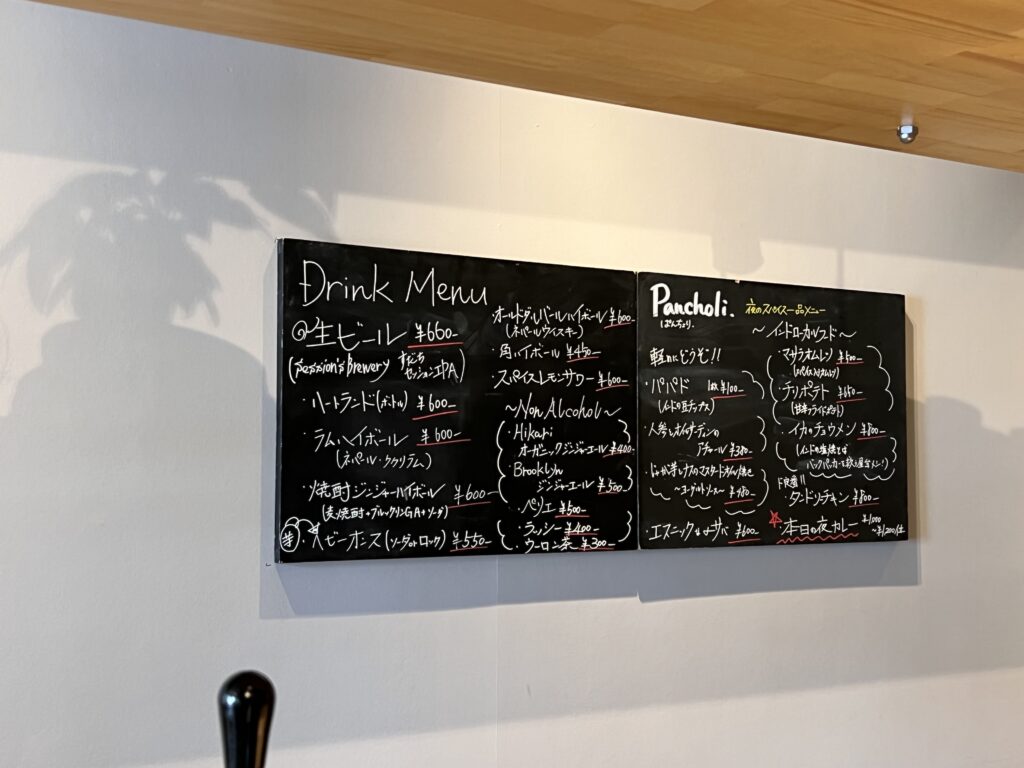 Drink Menu
生ビール ¥660-
(Session's Brewery すだち
セッションIPA)
・ハートランド(ボトル) ¥600-
・ラムハイボール ¥600-
(ネパール・ククリラム)
・焼酎ジンジャーハイボール ¥600-
(麦焼酎+ブルックリンGA+ソーダ)
(ソーダorロック) ¥550-
オールドダルバールハイボール ¥600-
(ネパールウイスキー)
・角ハイボール ¥450-
・スパイスレモンサワー ¥600-
〜Non Alcohol〜
・Hikari
オーガニックジンジャーエール ¥400-
・Brooklyn
ジンジャーエール ¥500-
・ペリエ ¥500-
・ラッシー ¥400-
・ウーロン茶 ¥300-
Pancholi.
ぱんちょり。
夜のスパイス一品メニュー
軽めにどうぞ!!
・パパド 1枚 ¥100-
(インドの豆チップス)
・人参とオイルサーディンの
アチャール ¥380-
・じゃが芋とナスのマスタードオイル焼き
〜ヨーグルトソース〜 ¥480-
・エスニックサバ ¥600-
〜インドローカルフード〜
・マサラオムレツ ¥500-
(スパイス入りオムレツ)
・チリポテト ¥650-
(甘辛フライドポテト)
・イカのチョウメン ¥800-
(インドの塩焼そば
バックパッカーを救う屋台メシ!)
下北産!!
・タンドリーチキン ¥800-
本日の夜カレー ¥1,000
〜¥1,200位